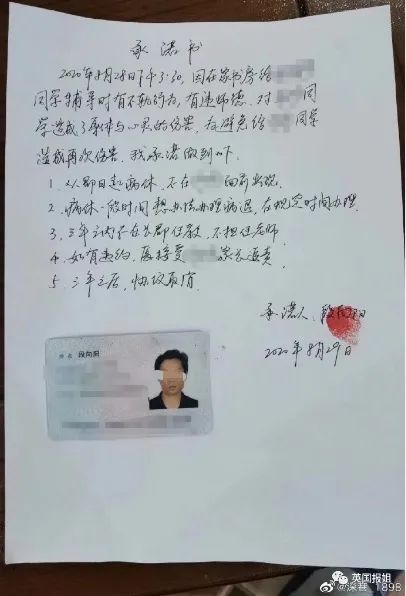 承诺书
2020年8月28日下午3:30,因在家书房给
同学辅导时有不行为,有违师德,对 同
学造成了身体与心灵的伤害,为避免给 同学
造成再次伤害,我承诺做到以下
1、从即日起病休,不在 面前出现。
2、病休一段时间想办法办理病退,在规定时间办理。
3、三年之内不在 郡任教,不担任老师
4、如有违约,愿接受 家长追责
5、三年之后,协议取消
承诺人:段向阳
2020年8月29日
姓名 段向阳
英国报姐
@深巷_1898